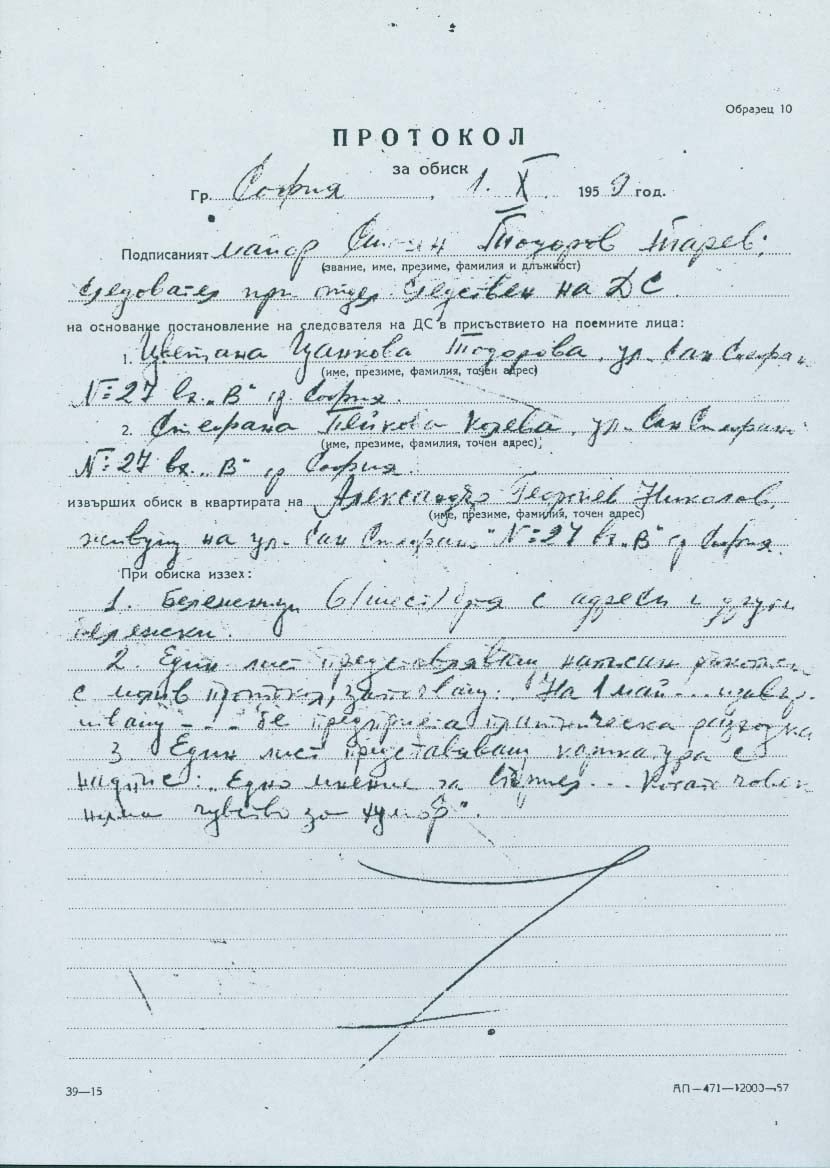 Образец 10
ПРОТОКОЛ
за обиск
Гр. София, 1. X. 1959 год.
Подписаният майор Тодоров
(звание, име, презиме, фамилия и длъжност)
следовател при отдел следствен на ДС
на основание постановление на следователя на ДС в присъствието на поемните лица:
1. Цветана Цанкова Тодорова, ул. Сан Стефано
(име, презиме, фамилия, точен адрес)
№ 27 вх. „В" гр. София.
2. Стефана Пейкова Колева, ул. Сан Стефано
(име, презиме, фамилия, точен адрес)
№ 27 вх. „В" гр. София
извърших обиск в квартирата на Александър Георгиев Николов,
(име, презиме, фамилия, точен адрес)
живущ на ул. Сан Стефано" № 27 вх. „В" гр. София.
При обиска иззех:
1. Бележници 6/шест/броя с адреси и други
бележки.
2. Един лист представляващ написан
с молив протокол, започващ: На 1 май...
- - - бе предприета разходка
3. Един лист представляващ карикатура с
надпис: „Едно мнение за ... Когато човек
няма чувство за хумор".
39—15
АП—471—12000—57